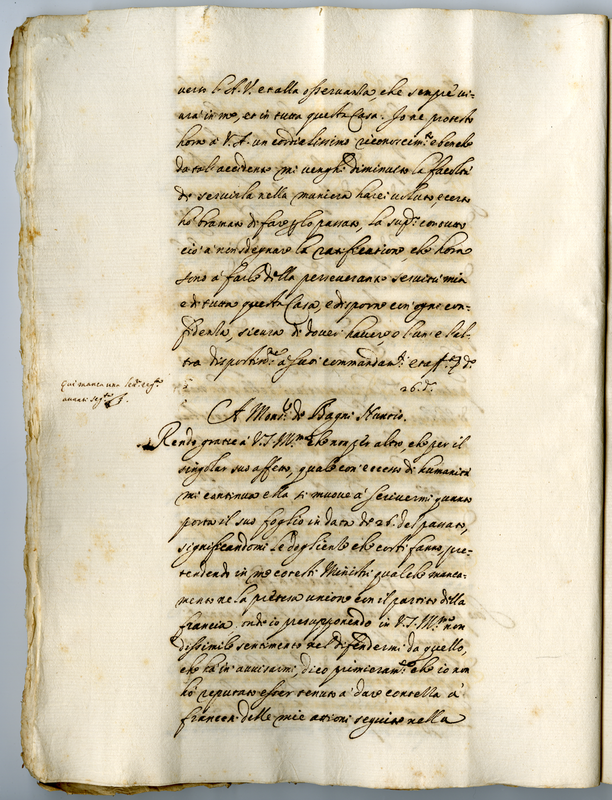 verso l'A.V. et alla osservanza, che sempre vi-
verà in me, et in tutta questa Casa. Io ne protesto
hora à V.A. un cordialissimo riconoscim.to e benche
da tal accidente mi venghi diminuito la facoltà
di servirla nella maniera harei voluto e certo
hò bramato di fare lo passato, la sup.co
ciò à non sdegnare la che hora
sono à farle della perseveranza servitù mia
e di tutta questa Casa, e disporre con ogni con-
fidenza, sicura di dover havere o l'un e l'al-
tra à suoi commandam.ti et aff.
26. d.
Qui manca una
avanti
A Mons.r de Bagni Nuntio.
Rendo gratie à V.S. Ill.ma che non per altro, che per il
singolar suo affetto, quale con eccesso di humanità
mi continua ella si muove à scrivermi quanto
porta il suo foglio in data de 26. del passato,
significandomi le doglienze che costì fanno, pre-
tendendo in me cotesti Ministri qualche manca-
mento ne la pretesa unione con il partito della
francia onde io presupponendo in V.S. Ill.ma non
dissimile sentimento nel difendermi da quello,
che ha in avvisarmi, dico primieram.te che io non
hò reputato esser tenuto a dare contezza a
francesi delle mie attioni seguite nella